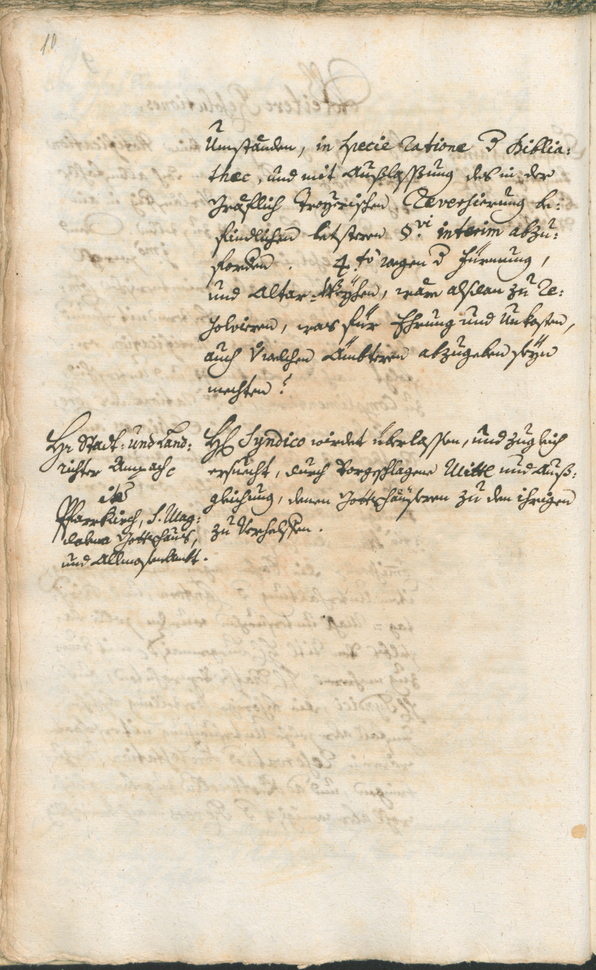 10
Umständen, in specie ratione d Biblia:
thec, und mit Außlassung des in der
Gräflich Troyerischen Reversierung be:
findlichen letsteren §vi interim abzu:
fordern. 4.to wegen d Fürmung,
und Altar-Weÿhen, wäre alsdan zu re:
solvieren, was für Ehrung und Unkosten,
auch welchen Ämbteren abzugeben seyn
mechten?
Hr Stadt: und Land:
richter Ampach
Pfarrkirch, S. Mag:
dalena Gottshaus,
und Allmosenambt.
H Syndico wirdet überlassen, und zugleich
ersucht, durch Vorgeschlagene Mittl und Auß:
gleichung, denen Gottshäuseren zu den ihrigen
zu Verhelffen.